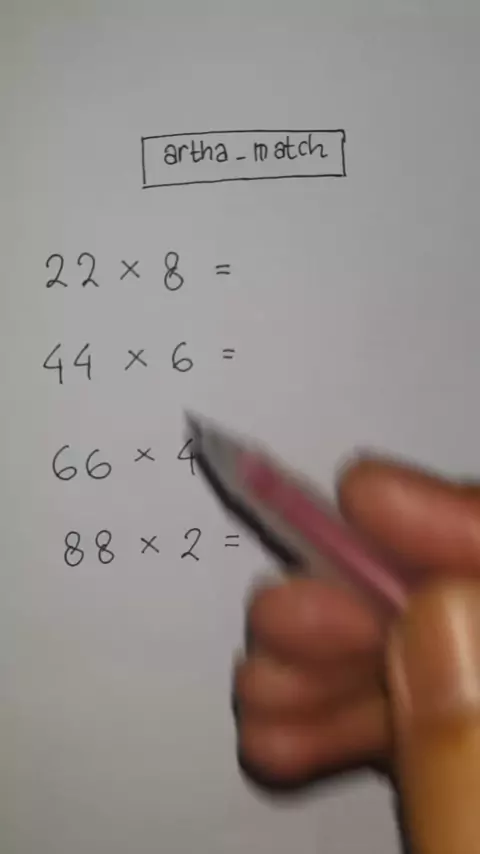 artha_match
22 × 8 =
44 × 6 =
66 × 4
88 × 2 =